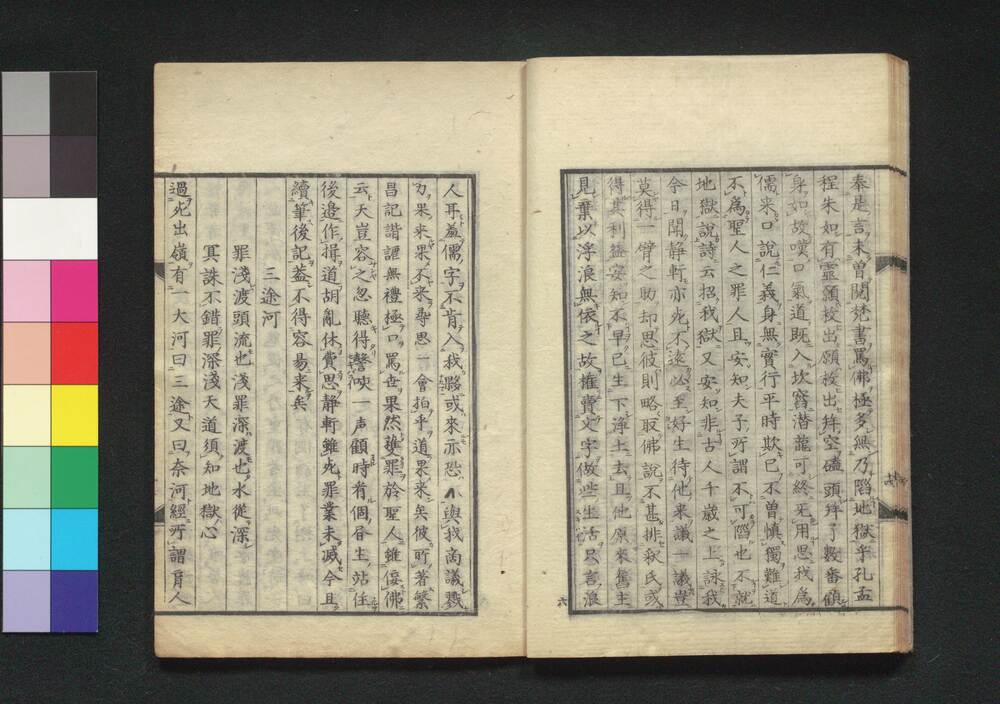 奉是言未曽閲梵書罵佛極多無乃陷地獄乎孔孟
程朱如有靈願救出願救出拜空磕頭拜了数番顧
身如故嘆口氣道既入坎窞潜龍可終无用思我為
儒来口說仁義身無實行平時欺已不曽慎獨難道
不為聖人之罪人且安知夫子所謂不可陷也不就
地獄說詩云招我獄又安知非古人千歳之上詠我
今日閑静斬亦死不遠必至好生待他来議一議豈
莫得一臂之助却思彼則略取佛說不甚排釈氏或
得其利益安知不早已生下浄土去且他原来舊主
見棄以浮浪無依之故権賣文字做些生活只言浪
六
人耳羞儒字不肯入我夥或来亦恐八與我商議戮
力果来果不来尋思一會拍乎道果来矣彼所著繁
昌記諧謔無禮極口罵世果然獲罪於聖人雖佞佛
云天豈容之忽聴得謦咳一声顧時有個昏生站住
後邉作揖道胡亂休費思静斬雖死罪業未滅今且
續筆後記葢不得容易来矣
三途河
罪淺渡頭流也淺罪深渡也水從深
冥誅不錯罪深淺天道須知地獄心
過死出嶺有一大河曰三途又曰奈河經所謂肩人